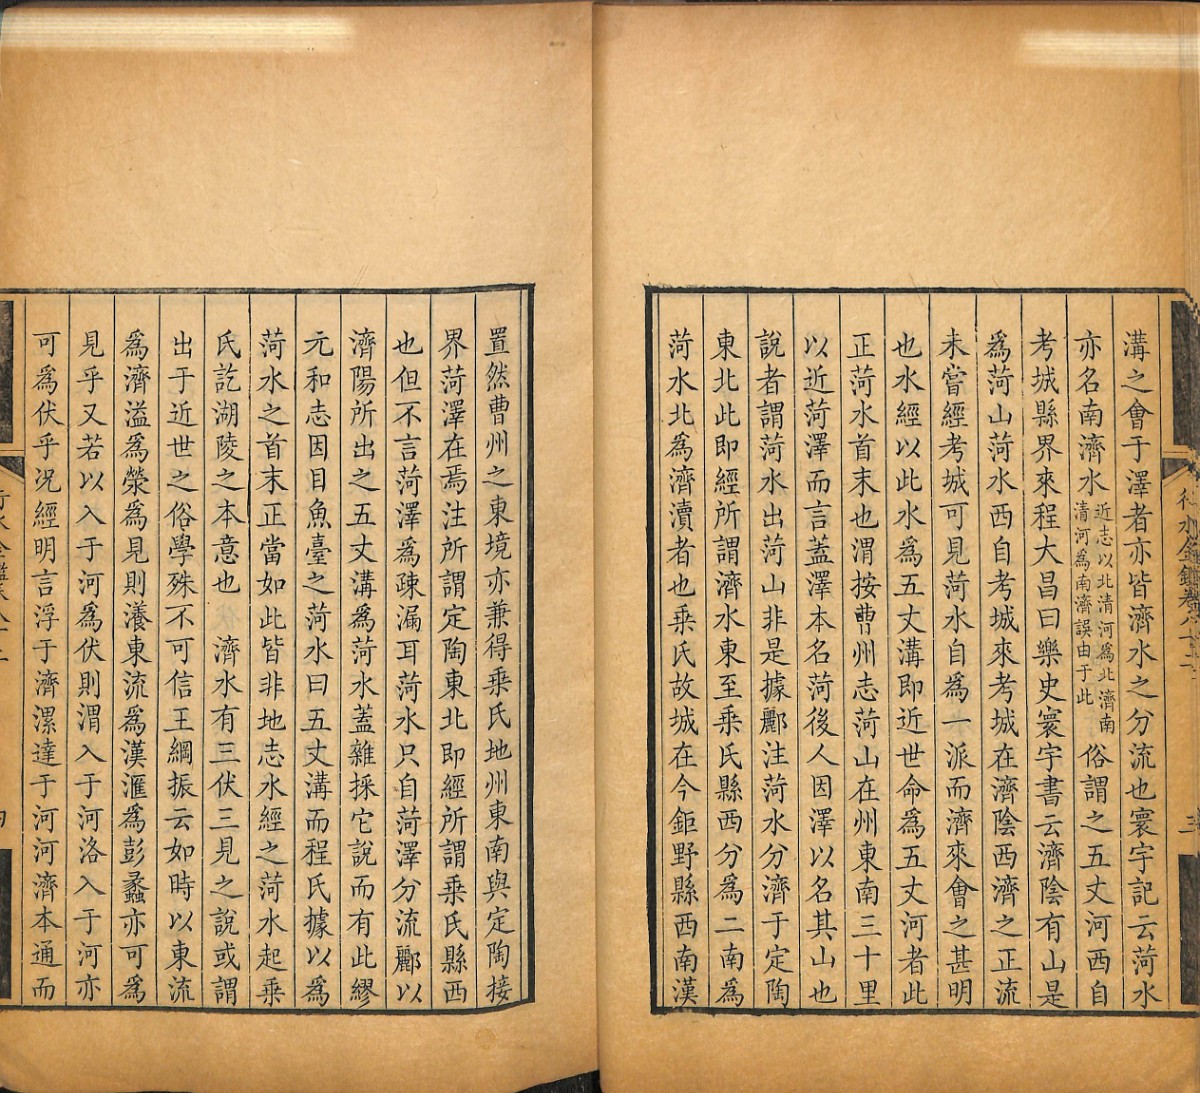 溝之會于澤者亦皆濟水之分流也寰宇記云菏水
亦名南濟水近志以北清河爲北濟南清河爲南濟誤由于此俗謂之五丈河西自
考城縣界來程大昌曰樂史寰宇書云濟陰有山是
爲菏山菏水西自考城來考城在濟陰西濟之正流
未嘗經考城可見菏水自爲一派而濟來會之甚明
也水經以此水爲五丈溝即近世命爲五丈河者此
正菏水首末也渭按曹州志菏山在州東南三十里
以近菏澤而言蓋澤本名菏後人因澤以名其山也
說者謂菏水出菏山非是據酈注菏水分濟于定陶
東北此即經所謂濟水東至乗氏縣西分爲二南爲
菏水北爲濟瀆者也乗氏故城在今鉅野縣西南漢
行水金鑑卷八十二
三
置然曹州之東境亦兼得乗氏地州東南與定陶接
界菏澤在焉注所謂定陶東北即經所謂乗氏縣西
也但不言菏澤爲疎漏耳菏水只自菏澤分流酈以
濟陽所出之五丈溝爲菏水蓋雜採它說而有此繆
元和志因目魚臺之菏水曰五丈溝而程氏據以爲
菏水之首末正當如此皆非地志水經之菏水起乗
氏訖湖陵之本意也　濟水有三伏三見之說或謂
出于近世之俗學殊不可信王綱振云如時以東流
爲濟溢爲滎爲見則瀁東流爲漢滙爲彭蠡亦可爲
見乎又若以入于河爲伏則渭入于河洛入于河亦
可爲伏乎況經明言浮于濟漯達于河河濟本通而